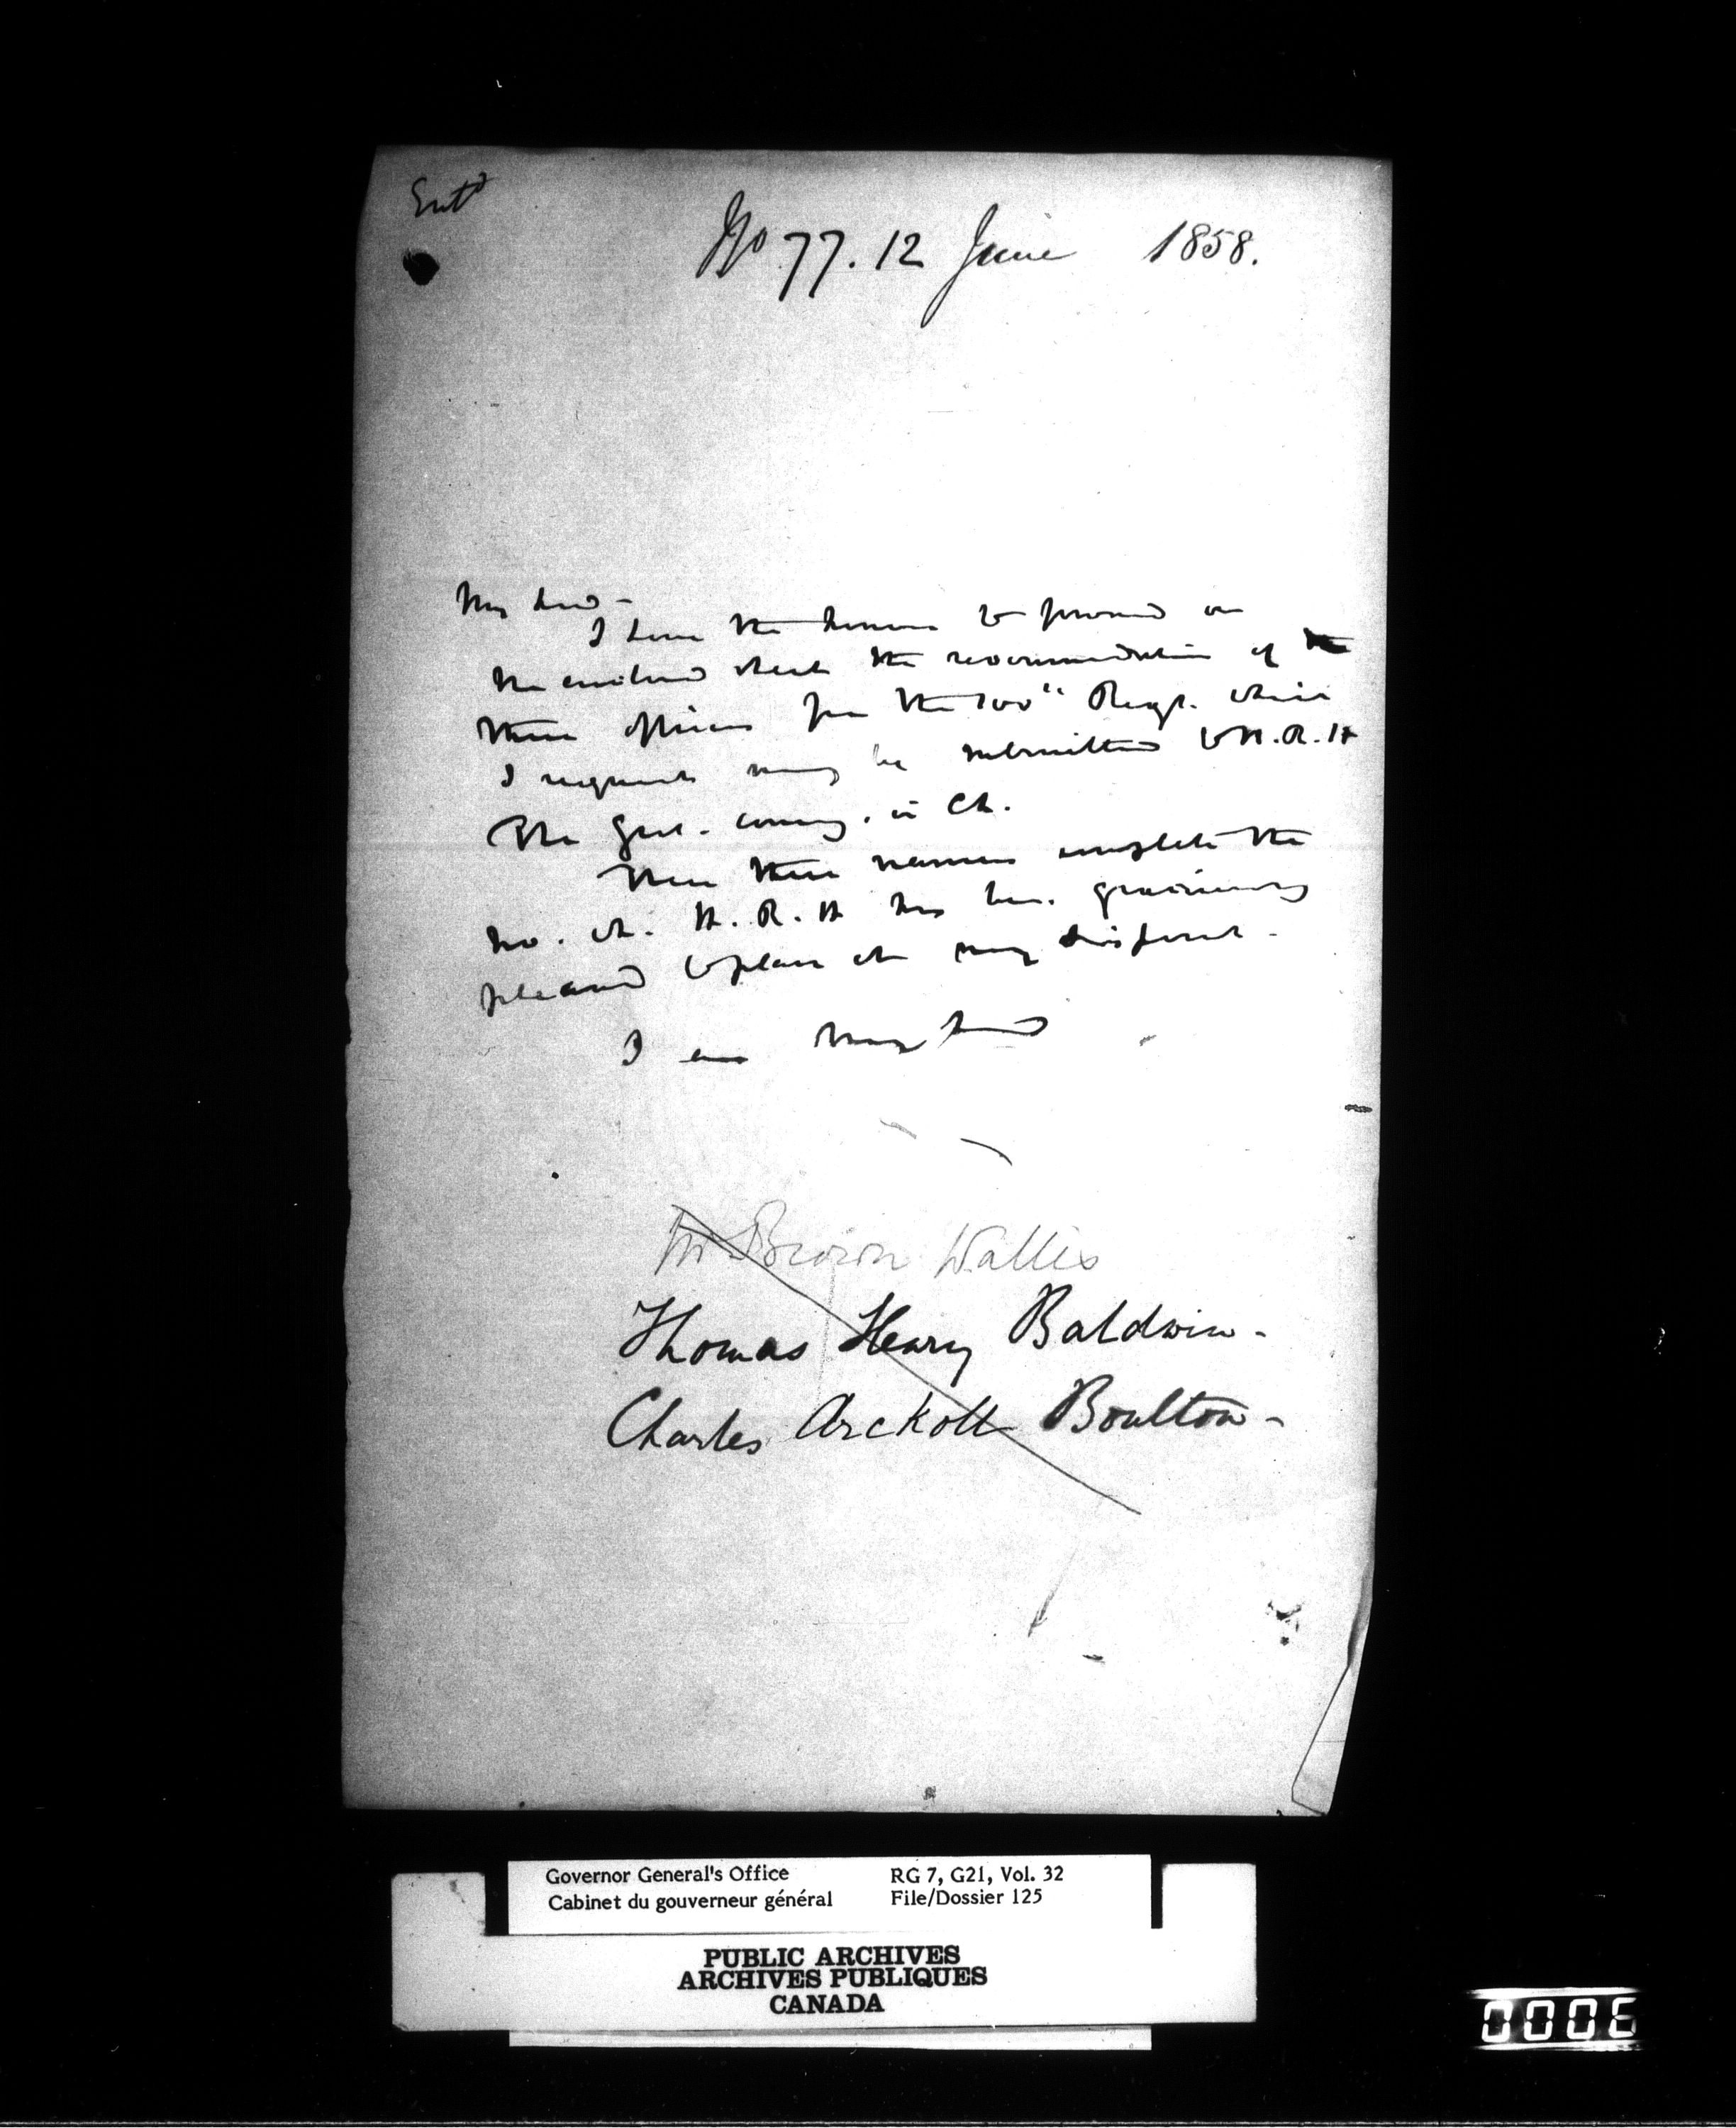 Entd
No 77. 12 June 1858.
My Lord -
I have the honour to forward on
the enclosed sheet the recommendation of
three officers for the 100th Regt. which
I request may be submitted to H.R.H
The Genl. Comg. in Ch.
These three names complete the
no. wh. H.R.H has been graciously
pleased to place at my disposal -
I am My Lord
Mr Brown Wallis
Thomas Henry Baldwin -
Charles Arckoll Boulton -
Governor General's Office RG 7, G21, Vol. 32
Cabinet du gouverneur général File/Dossier 125
PUBLIC ARCHIVES
ARCHIVES PUBLIQUES
CANADA
0006